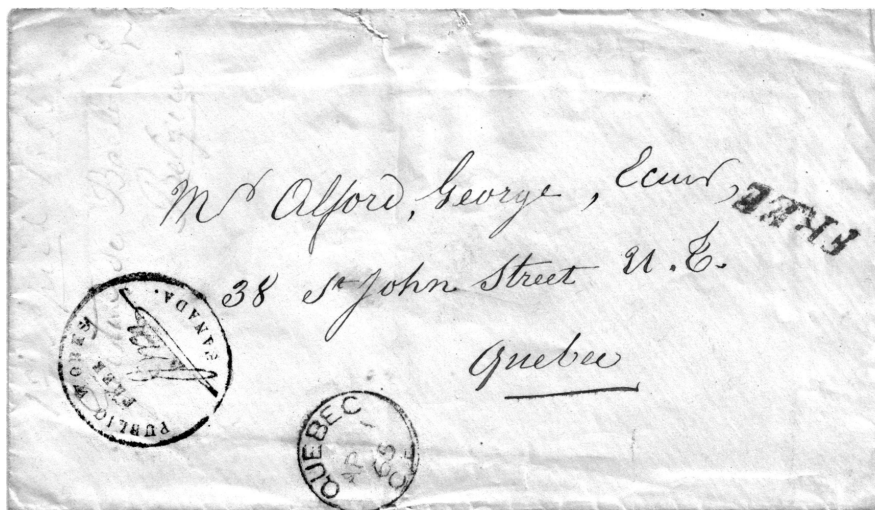 Mr Alford, George, Ecuier,
FREE
38 St John Street U.C.
Quebec
PUBLIC WORKS
CANADA.
FREE
QUEBEC
AP 1